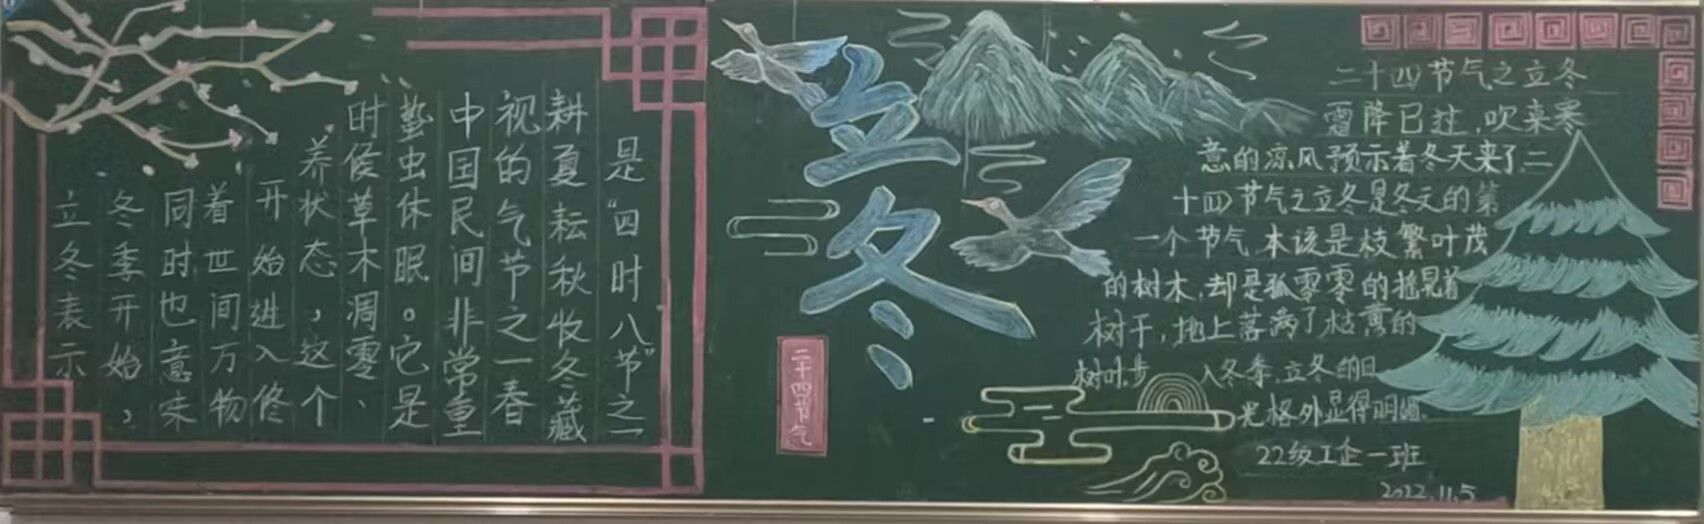 立冬表示
冬季开始，
同时也意味
着世间万物
开始进入修
养状态，这个
时候草木凋零、
蛰虫休眠。它是
中国民间非常重
视的气节之一春
耕夏耘秋收冬藏
是“四时八节”之一
立冬
二十四节气
二十四节气之立冬
霜降已过，吹来寒
意的凉风预示着冬天来了.二
十四节气之立冬是冬天的第
一个节气,本该是枝繁叶茂
的树木,却是孤零零的摇晃着
树干，地上落满了枯萎的
树叶.步入冬季,立冬的日
光格外显得明媚.
22级工企一班
2022.11.5